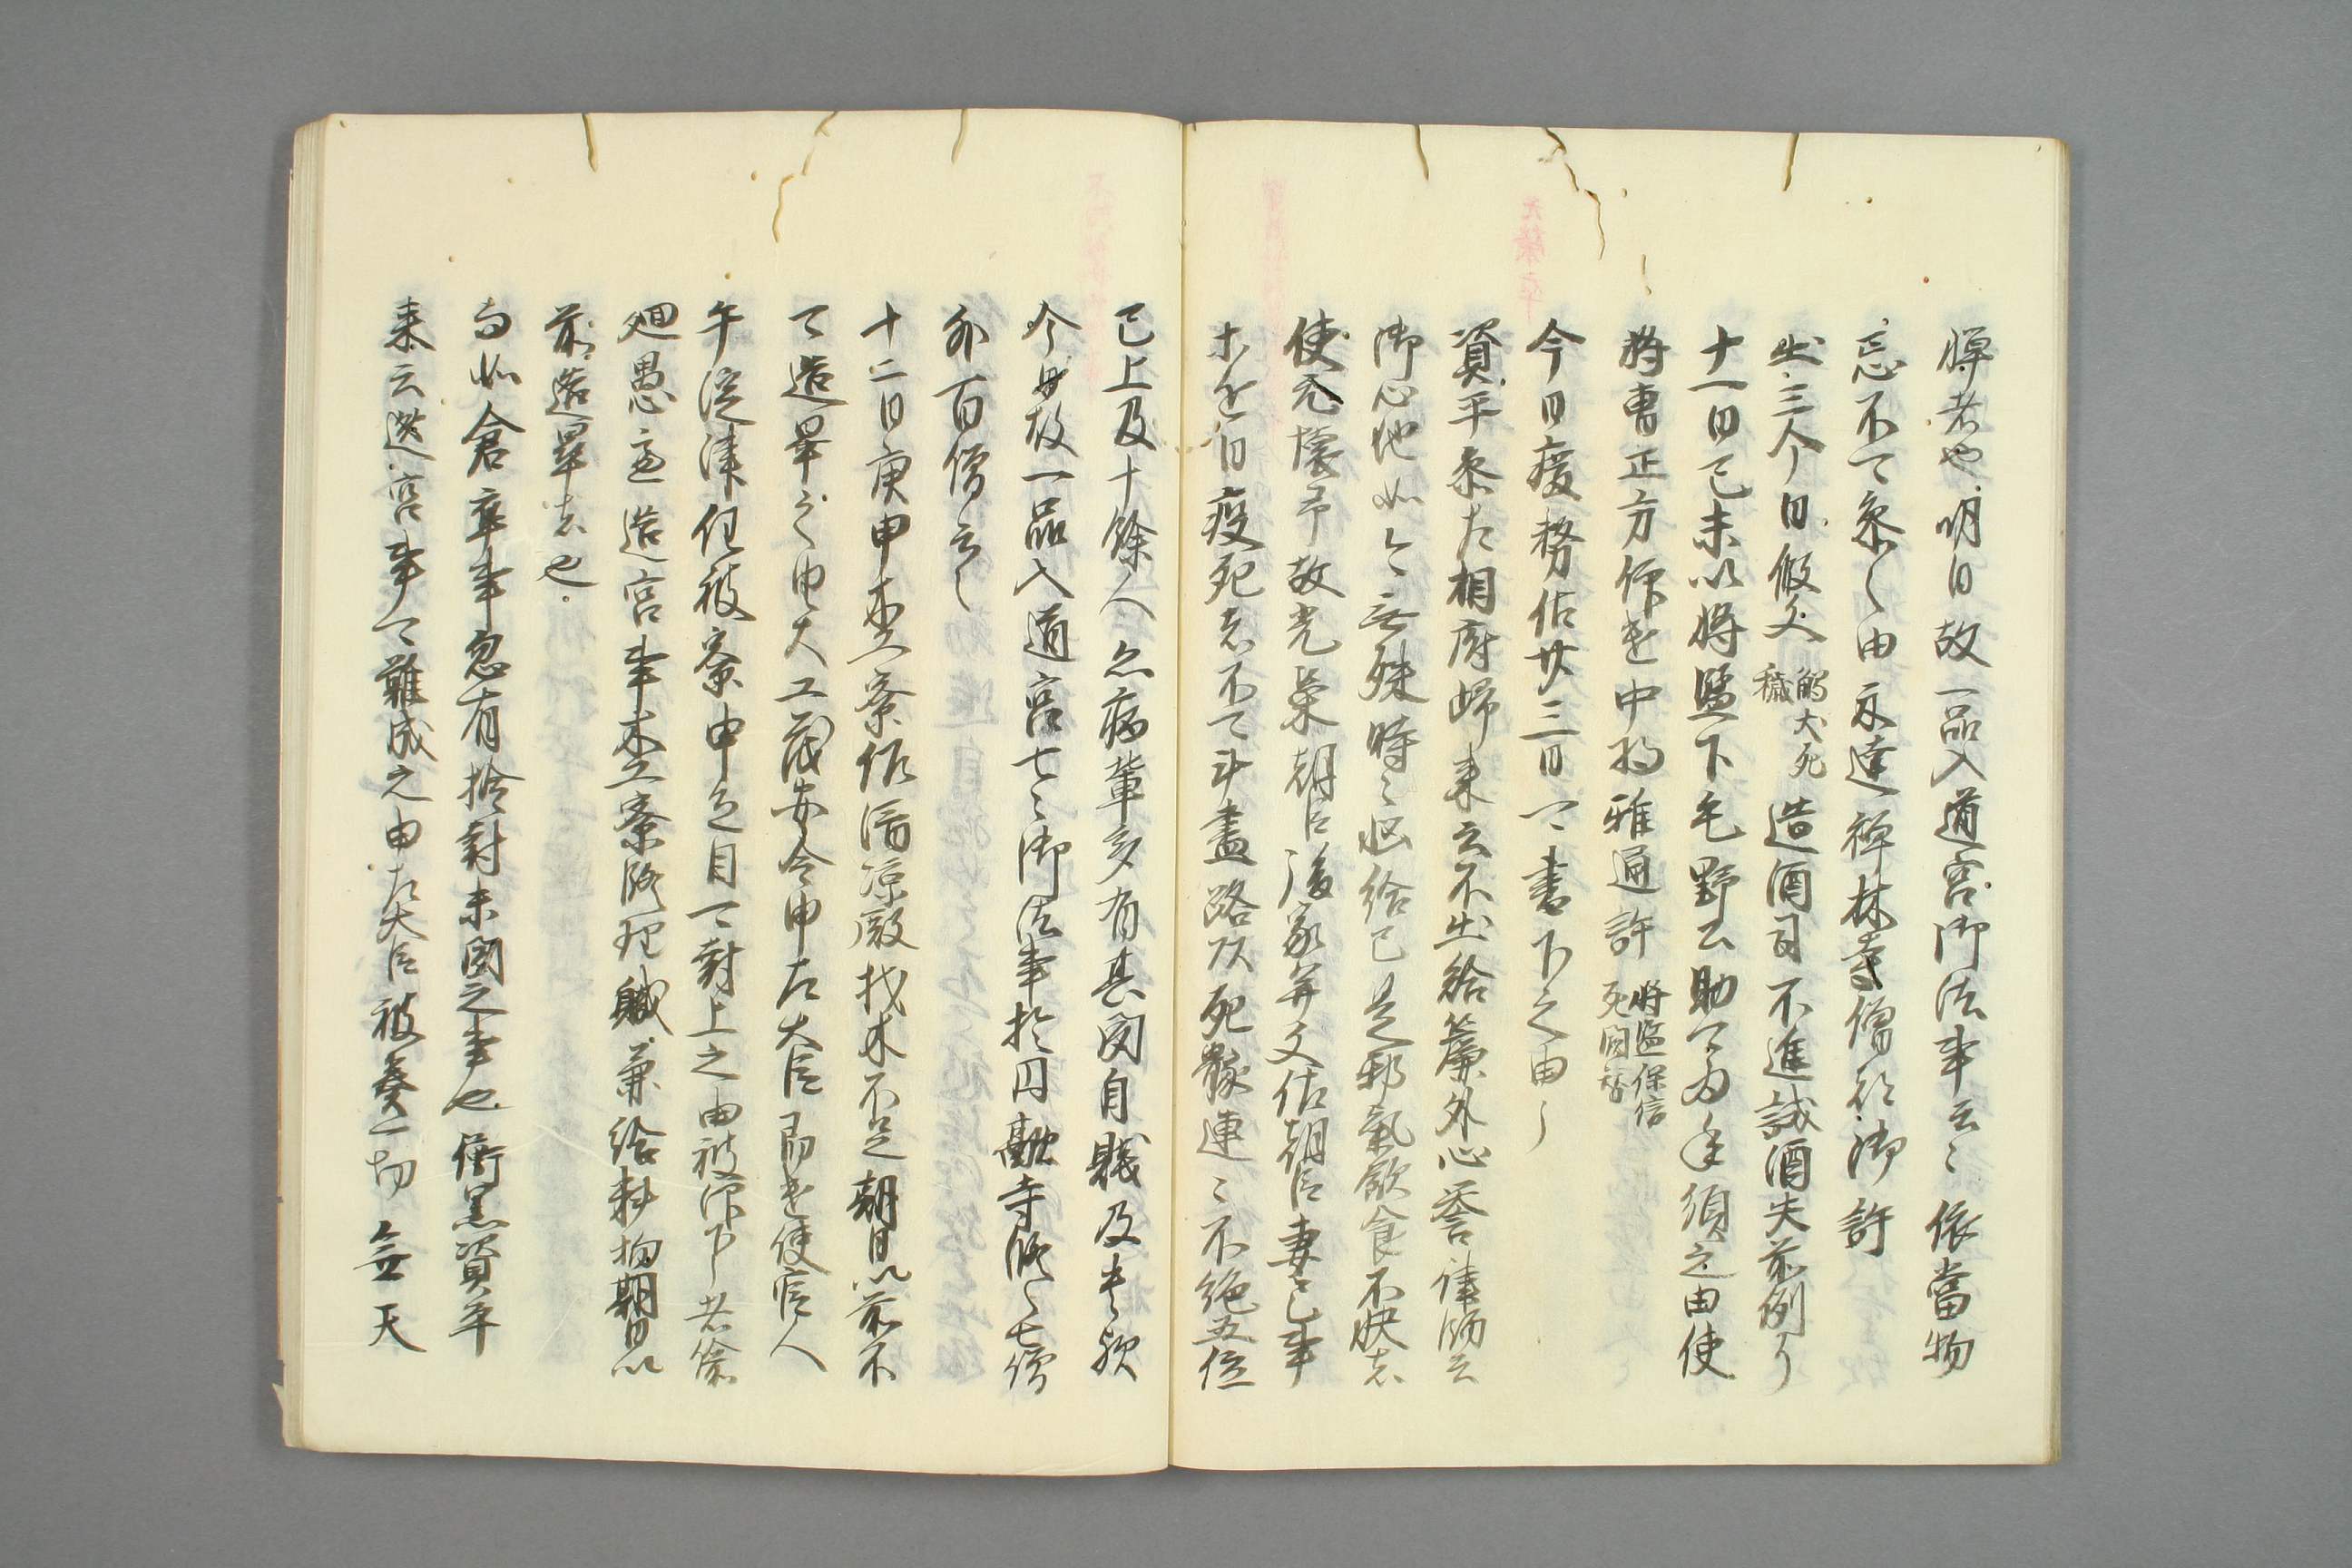 憚者也、明日故一品入道宮御法事云々、依當物
忌不可参之由示達禅林寺僧都御許
出三个日假文 觸犬死穢 造酒司不進誠酒失前例了
十一日己未以将監下毛野公助可為年預之由使
将曹正方仰遣中将雅通許 将監保信死闕替
今日疫務佑廿三日可書下之由
資平参左相府帰来云不出給簾外心誉律師云
御心地如、無殊時々悩給已是邪氣飲食不快者
使元懐弔故光榮朝臣後家并文佐朝臣妻已事
等近日疫死者不可計盡路次死骸連々不絶五位
已上及十餘人亦病輩多有其聞自賤及貴歟
今日故一品入道宮七々御法事於円融寺修之七僧
外百僧云々
十二日庚申木工寮仰清涼殿材木不足期日以前不
可造畢之由大工茂安令申左大臣即遣使官人
午淀津任被寮申之目可對上之由被仰下者僉
廻愚慮造宮事木工寮修理職兼給料物期日以
前造畢者也
而如倉卒事忽有捨封未聞之事也衝黒資平
来云造宮事可難成之由左大臣被奏一切 無天